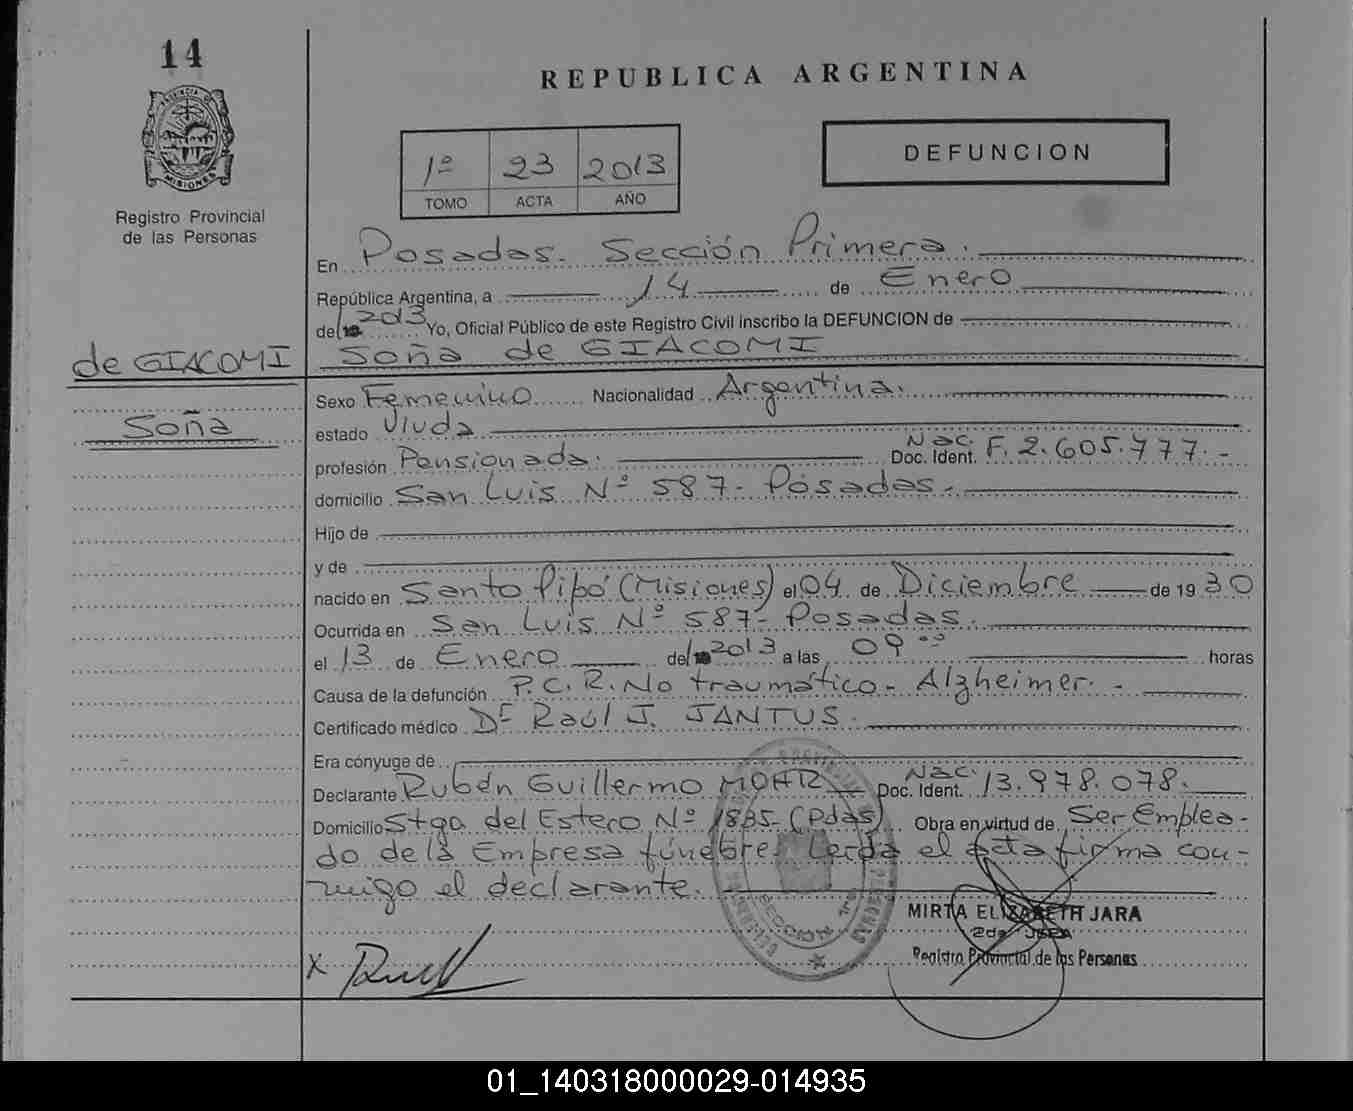 14
PROVINCIA DE
MISIONES
Registro Provincial
de las Personas
REPUBLICA ARGENTINA
1º 23 2013
TOMO ACTA AÑO
DEFUNCION
En Posadas. Sección Primera.
República Argentina, a 14 de Enero
del 2013 Yo, Oficial Público de este Registro Civil inscribo la DEFUNCION de
de GIACOMI
Soña de GIACOMI
Soña
Sexo Femenino Nacionalidad Argentina.
estado Viuda
profesión Pensionada. Doc. Ident. Nac. F. 2.605.777.-
domicilio San Luis Nº 587- Posadas.
Hijo de
y de
nacido en Santo Pipó (Misiones) el 04 de Diciembre de 1930
Ocurrida en San Luis Nº 587- Posadas.
el 13 de Enero del 2013 a las 09 00 horas
Causa de la defunción P.C.R. No traumático - Alzheimer. -
Certificado médico Dr Raúl J. JANTUS.
Era cónyuge de
Declarante Rubén Guillermo MOHR Doc. Ident. Nac. 13.978.078.
Domicilio Stgo del Estero Nº 1835- (Pdas) Obra en virtud de Ser Emplea-
do de la Empresa fúnebre. Leída el acta firma con-
migo el declarante.
MIRTA ELIZABETH JARA
2da JEFA
Registro Provincial de las Personas
SECCION 1ra
X
01_140318000029-014935